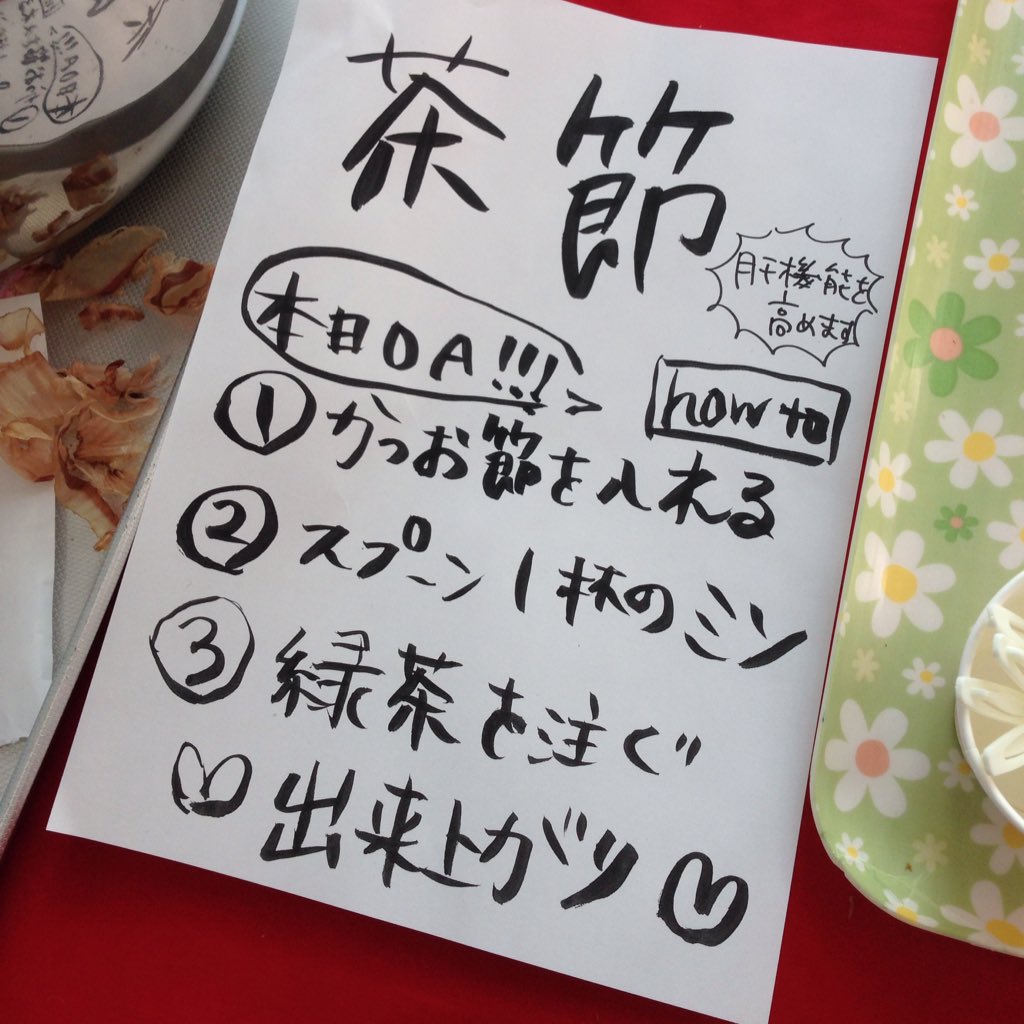 茶節
肝機能を
高めます
本日OA!!!
how to
①かつお節を入れる
②スプーン1杯のミソ
③緑茶を注ぐ
出来上がり